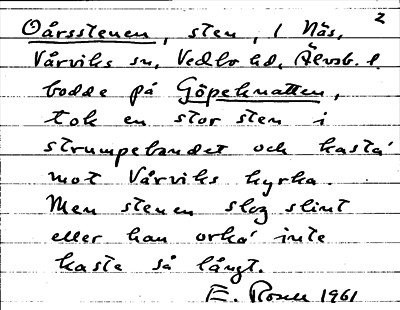 2
Oårsstenen, sten, i Näs,
Vårviks sn, Vedbo hd, Älvsb. l.
bodde på Göpeknatten,
tok en stor sten i
strumpebandet och kasta'
mot Vårviks kyrka.
Men stenen slog slint
eller han orka' inte
kaste så långt.
E. Rosen 1961